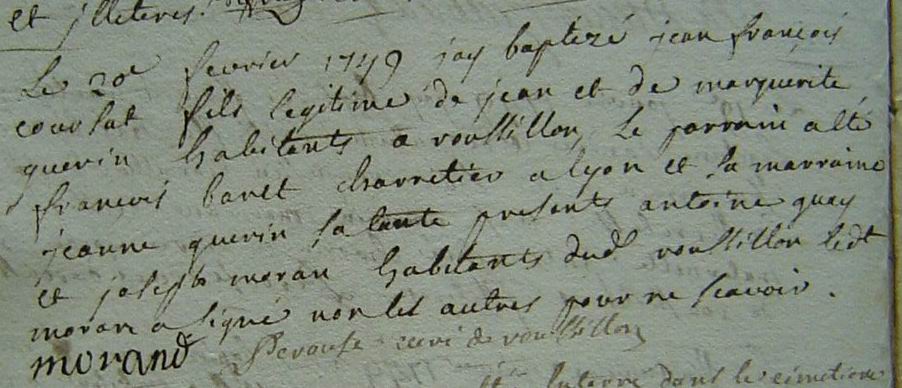 et illeteres.
Le 20e fevrier 1749 jay baptizé jean françois
coursat fils legitime de jean et de marguerite
guerin habitants a roussillon, Le parrain a été
francois baret charretier a lyon et la marraine
jeanne guerin sa tante presents antoine guay
et joseph moran habitants dud roussillon ledt
moran a signé non les autres pour ne scavoir.
morand curé de roussillon
enterré dans le cimetiere